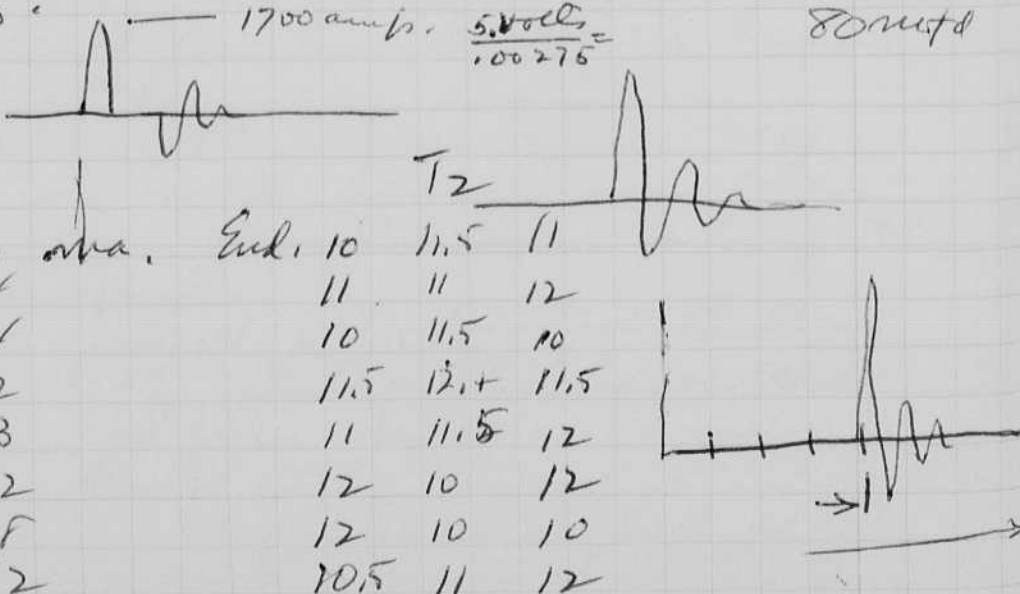 1700 amp. 5. volts 80 mfd
.00275 =
T2
End. 10 11.5 11
11 11 12
10 11.5 10
2 11.5 12.+ 11.5
3 11 11.5 12
2 12 10 12
12 10 10
2 10.5 11 12